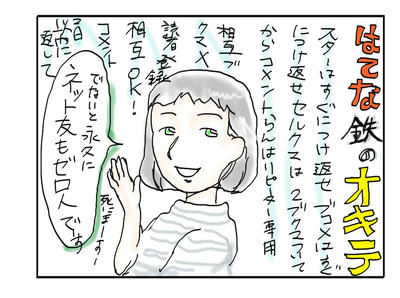 はてな鉄のオキテ
スターはすぐにつけ返せ ブコメはすぐ
につけ返せ セルクマは 2ブクマついて
から コメントらんはリピーター専用
相互ブ
クマ×
読者登録
相互OK!
コメント
3日
以内に
返して
でないと永久に
ネット友もゼロ人です
死にまーす!